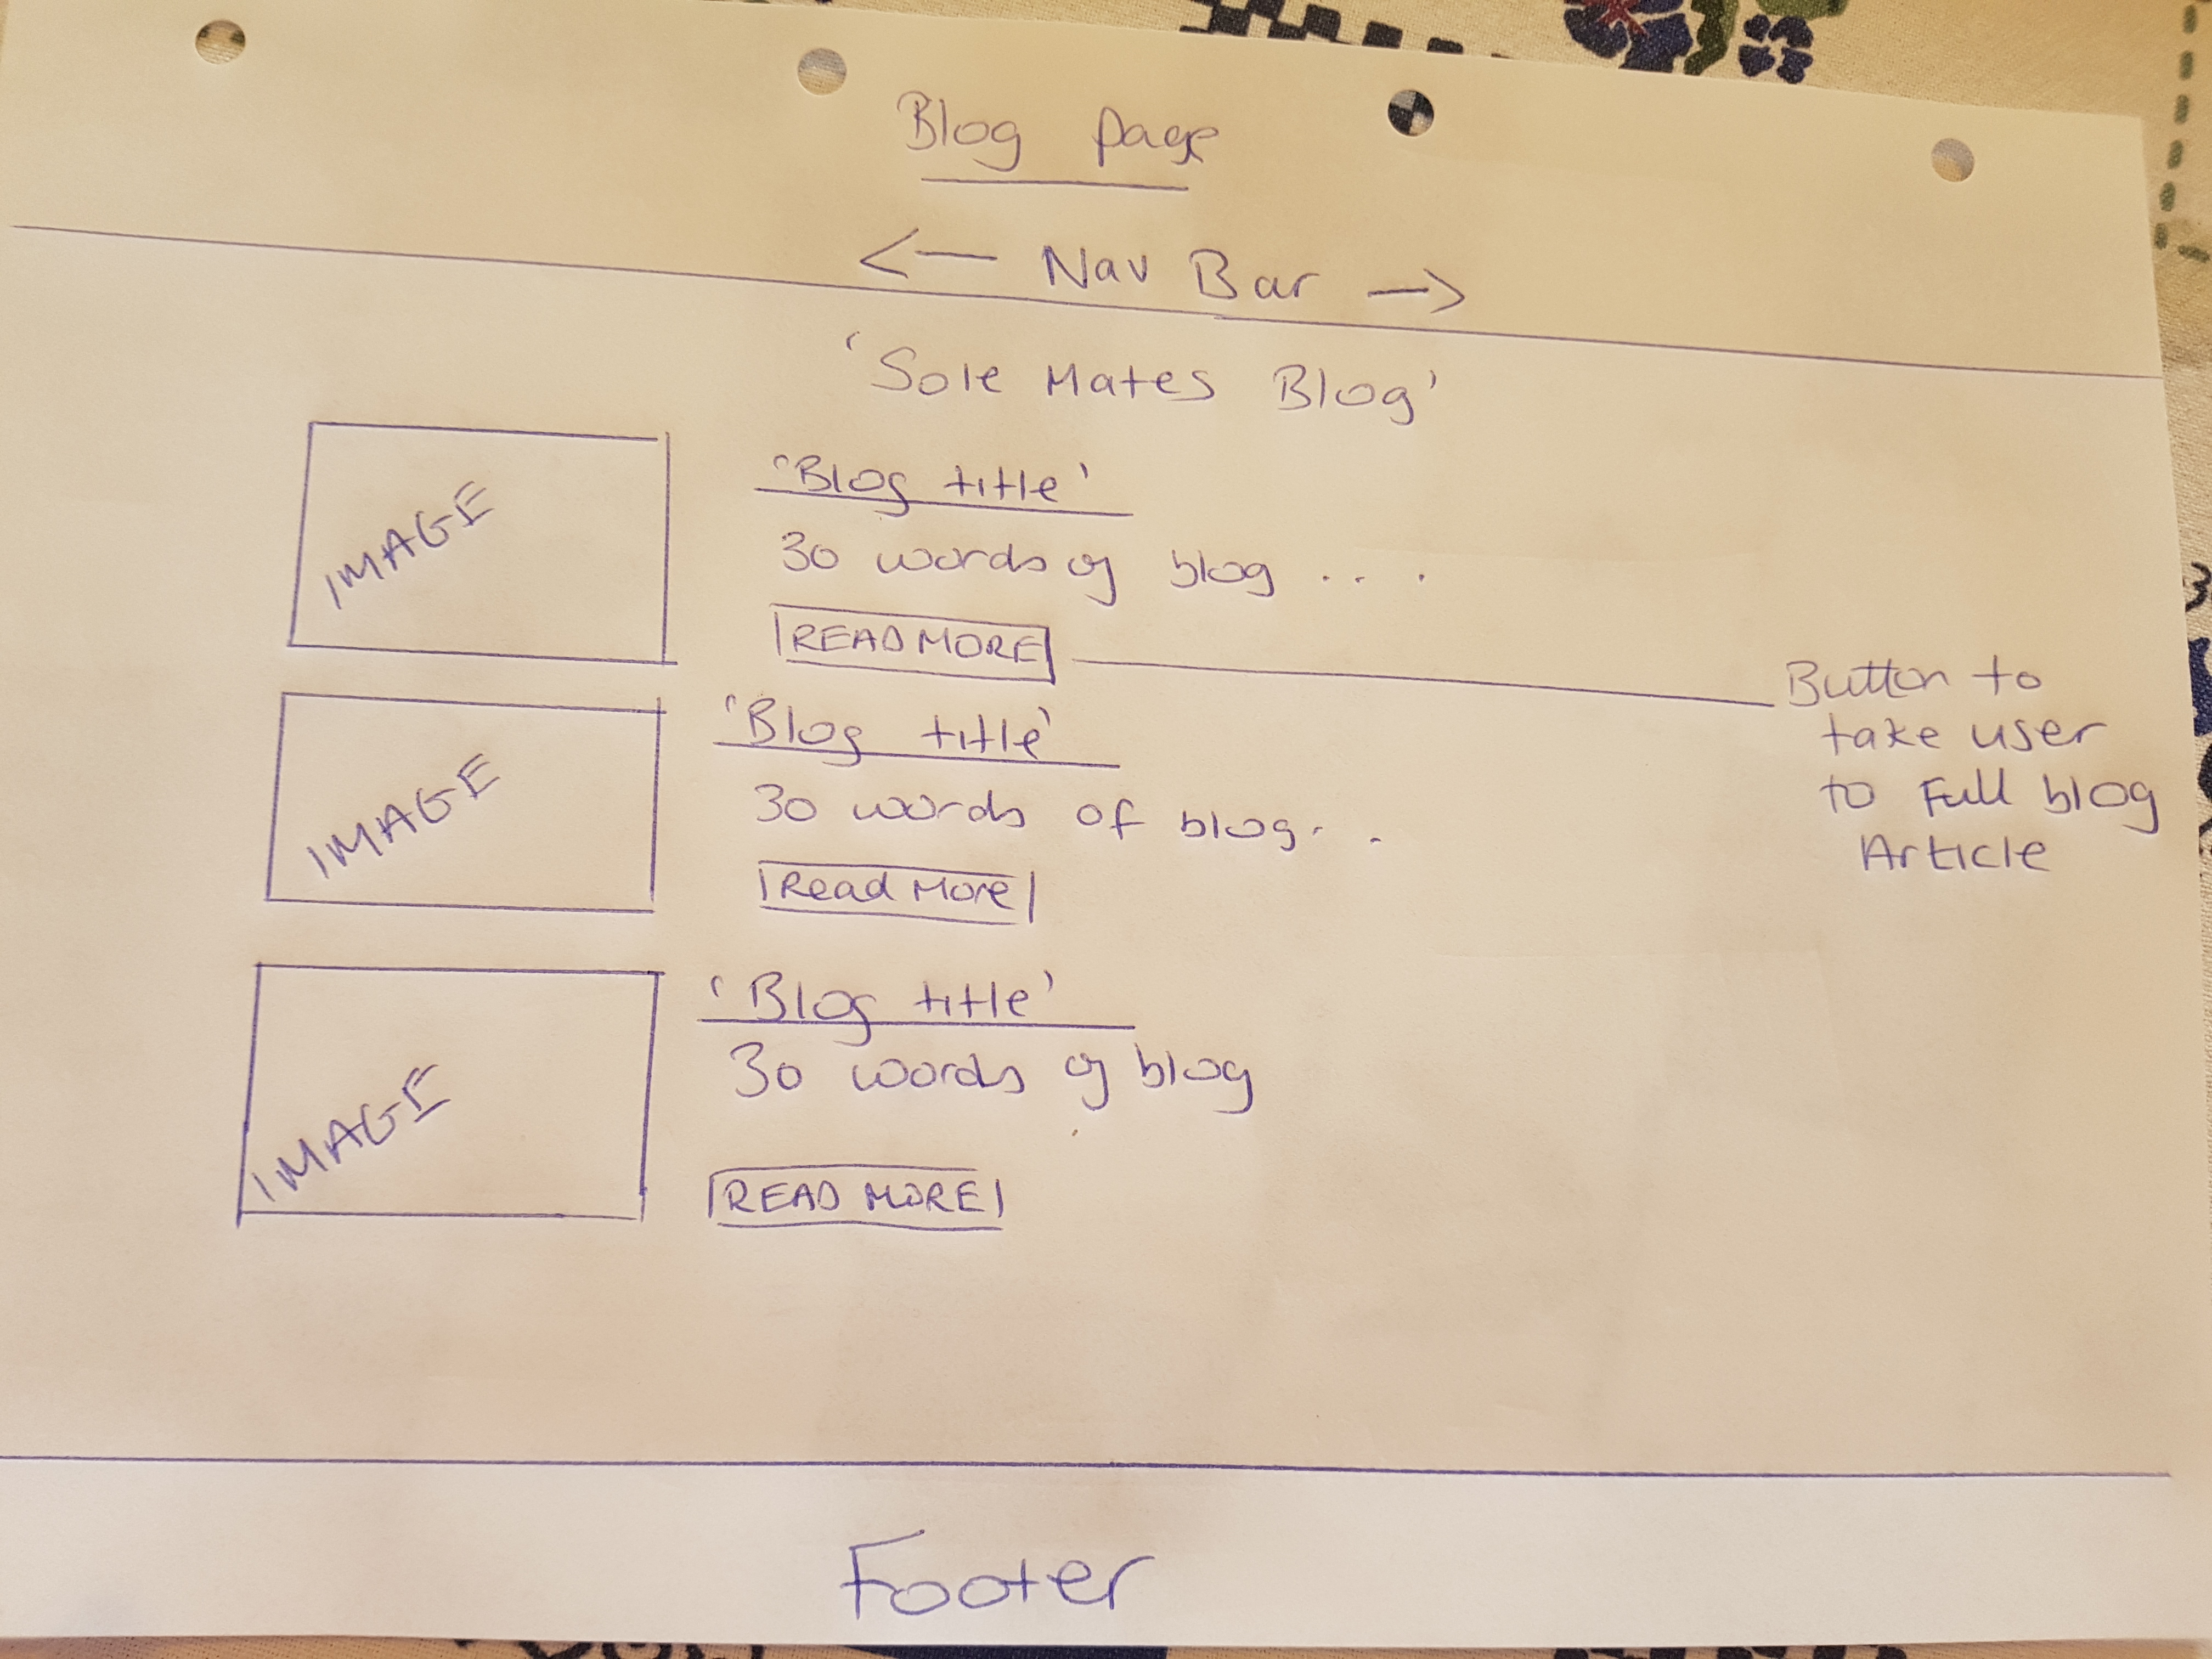 Blog page
<— Nav Bar —>
'Sole Mates Blog'
IMAGE
'Blog title'
30 words of blog ...
READ MORE
Button to
take user
to Full blog
Article
IMAGE
'Blog title'
30 words of blog...
Read More
IMAGE
'Blog title'
30 words of blog
READ MORE
Footer